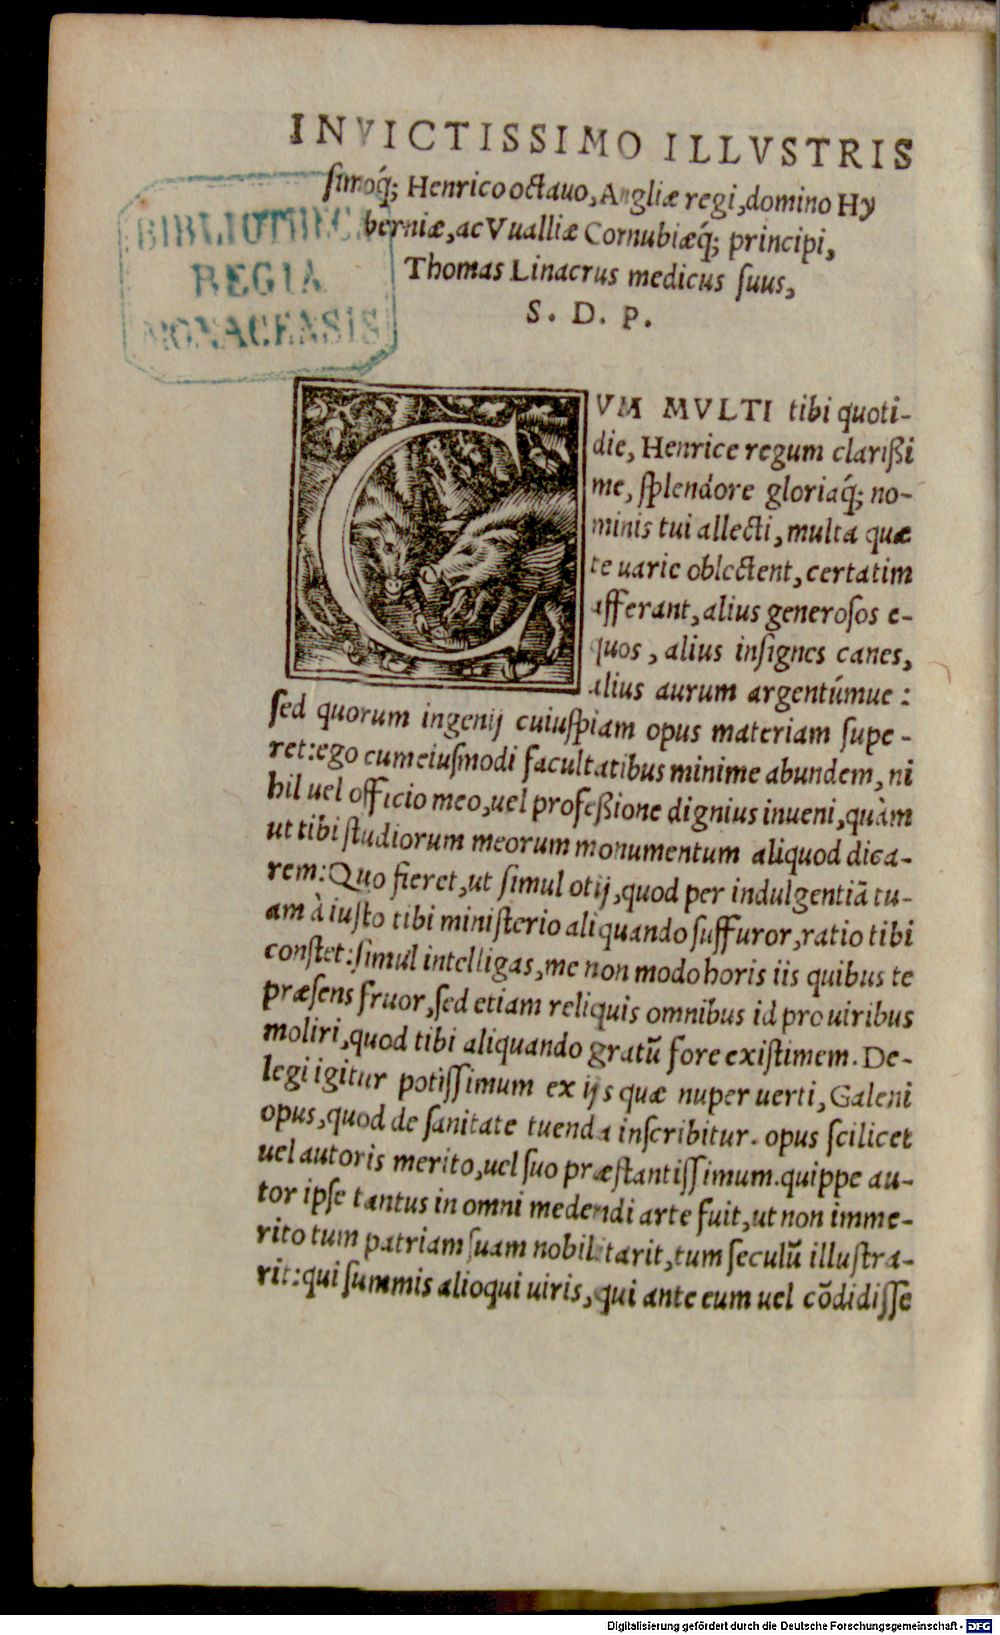 INVICTISSIMO ILLVSTRIS
simoq́; Henrico octauo, Angliæ regi, domino Hy
berniæ, ac Vualliæ Cornubiæq́; principi,
Thomas Linacrus medicus suus,
S. D. P.
BIBLIOTHECA
REGIA
MONACENSIS
CVM MVLTI tibi quoti-
die, Henrice regum clarißi
me, splendore gloriaq́; no-
minis tui allecti, multa quæ
te uarie oblectent, certatim
afferant, alius generosos e-
quos, alius insignes canes,
alius aurum argentúmue:
sed quorum ingenij cuiuspiam opus materiam supe-
ret: ego cum eiusmodi facultatibus minime abundem, ni
hil uel officio meo, uel profeßione dignius inueni, quàm
ut tibi studiorum meorum monumentum aliquod dica-
rem: Quo fieret, ut simul otij, quod per indulgentiã tu-
am à iusto tibi ministerio aliquando suffuror, ratio tibi
constet: simul intelligas, me non modo horis iis quibus te
præsens fruor, sed etiam reliquis omnibus id pro uiribus
moliri, quod tibi aliquando gratũ fore existimem. De-
legi igitur potissimum ex ijs quæ nuper uerti, Galeni
opus, quod de sanitate tuenda inscribitur. opus scilicet
uel autoris merito, uel suo præstantissimum. quippe au-
tor ipse tantus in omni medendi arte fuit, ut non imme-
rito tum patriam suam nobilitarit, tum seculũ illustra-
rit: qui summis alioqui uiris, qui ante eum uel cõdidisse
Digitalisierung gefördert durch die Deutsche Forschungsgemeinschaft - DFG